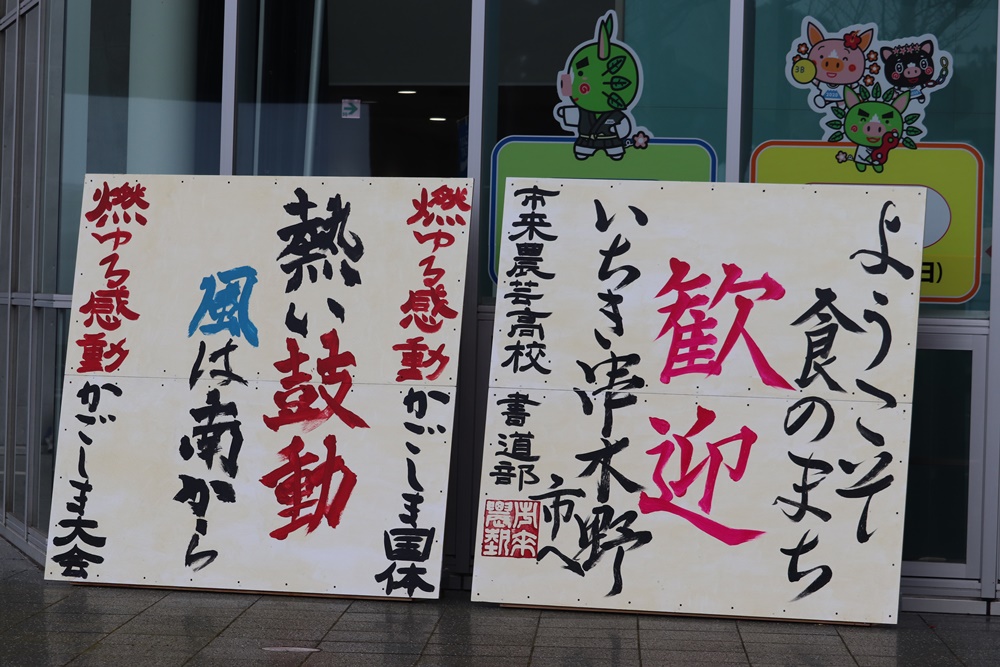 燃ゆる感動かごしま国体
熱い鼓動
風は南から
燃ゆる感動かごしま大会
ようこそ
食のまち
歓迎
いちき串木野
市へ
市来農芸高校 書道部
日)
38